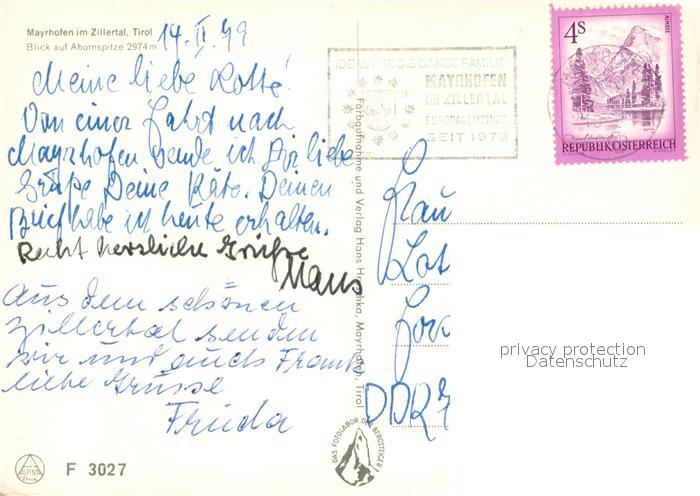 Mayrhofen im Zillertal, Tirol
Blick auf Ahornspitze 2974m
14. II. 79
Meine liebe Lotte!
Von einer Fahrt nach
Mayrhofen sende ich Dir liebe
Grüße Deine Käte. Deinen
Brief habe ich heute erhalten.
Recht herzliche Grüße
Hans
Aus dem schönen
Zillertal senden
wir und auch Frank
liebe Grüsse
Frieda
ALPINA
Druck
F 3027
IDEAL FÜR DIE GANZE FAMILIE
MAYRHOFEN
IM ZILLERTAL
EUROPAGEMEINDE
SEIT 1973
4S
ALMSEE
REPUBLIK ÖSTERREICH
Farbaufnahme und Verlag Hans Hruschka, Mayrhofen, Tirol
DAS FOTOLABOR DER BERGSTEIGER
Frau
Lot
DDR 7
privacy protection
Datenschutz